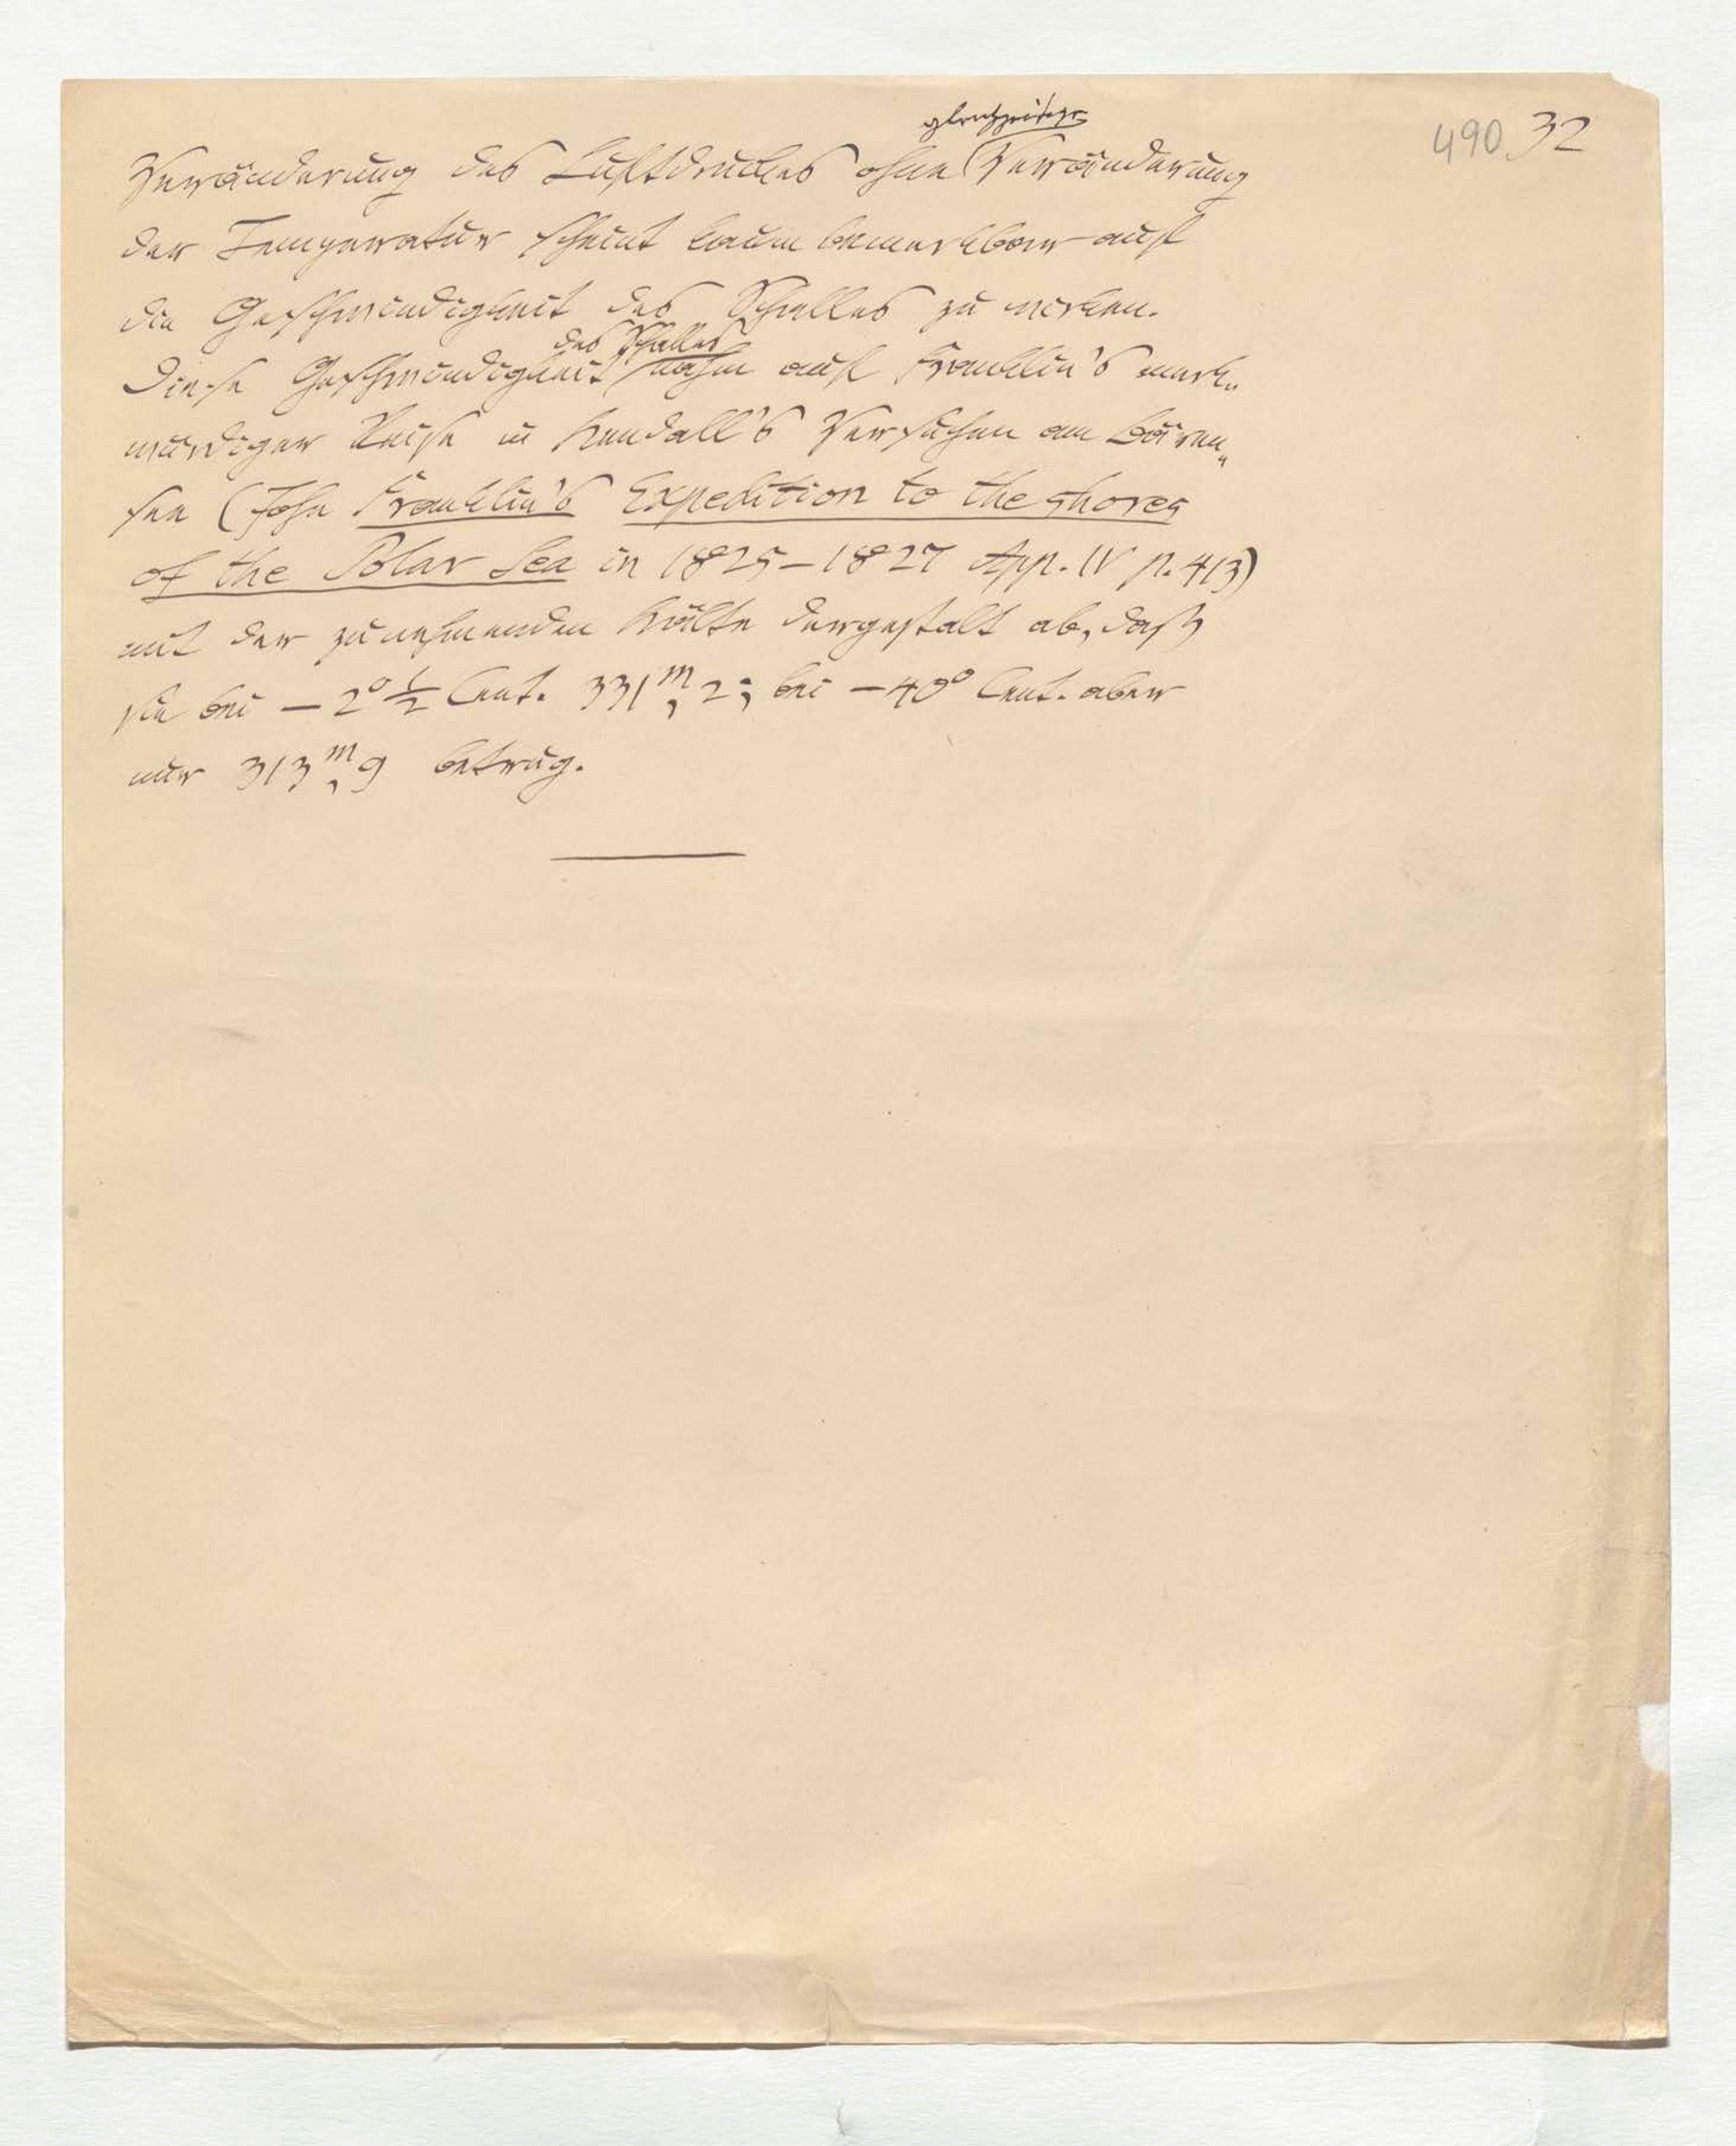 490 32
gleichzeitige
Veränderung des Luftdruckes ohne Veränderung
der Temperatur scheint kaum bemerkbar auf
die Geschwindigkeit des Schalles zu wirken.
des Schalles
Diese Geschwindigkeit nahm auf Franklin's merk„
würdiger Reise in Kendall's Versuchen am Bären„
see (John Franklin's Expedition to the shores
of the Polar Sea in 1825–1827 App. IV p. 413)
mit der zunehmenden Kälte dergestalt ab, daß
sie bei – 2° ½ Cent. 331ᵐ,2; bei – 40° Cent. aber
nur 313ᵐ,9 betrug.